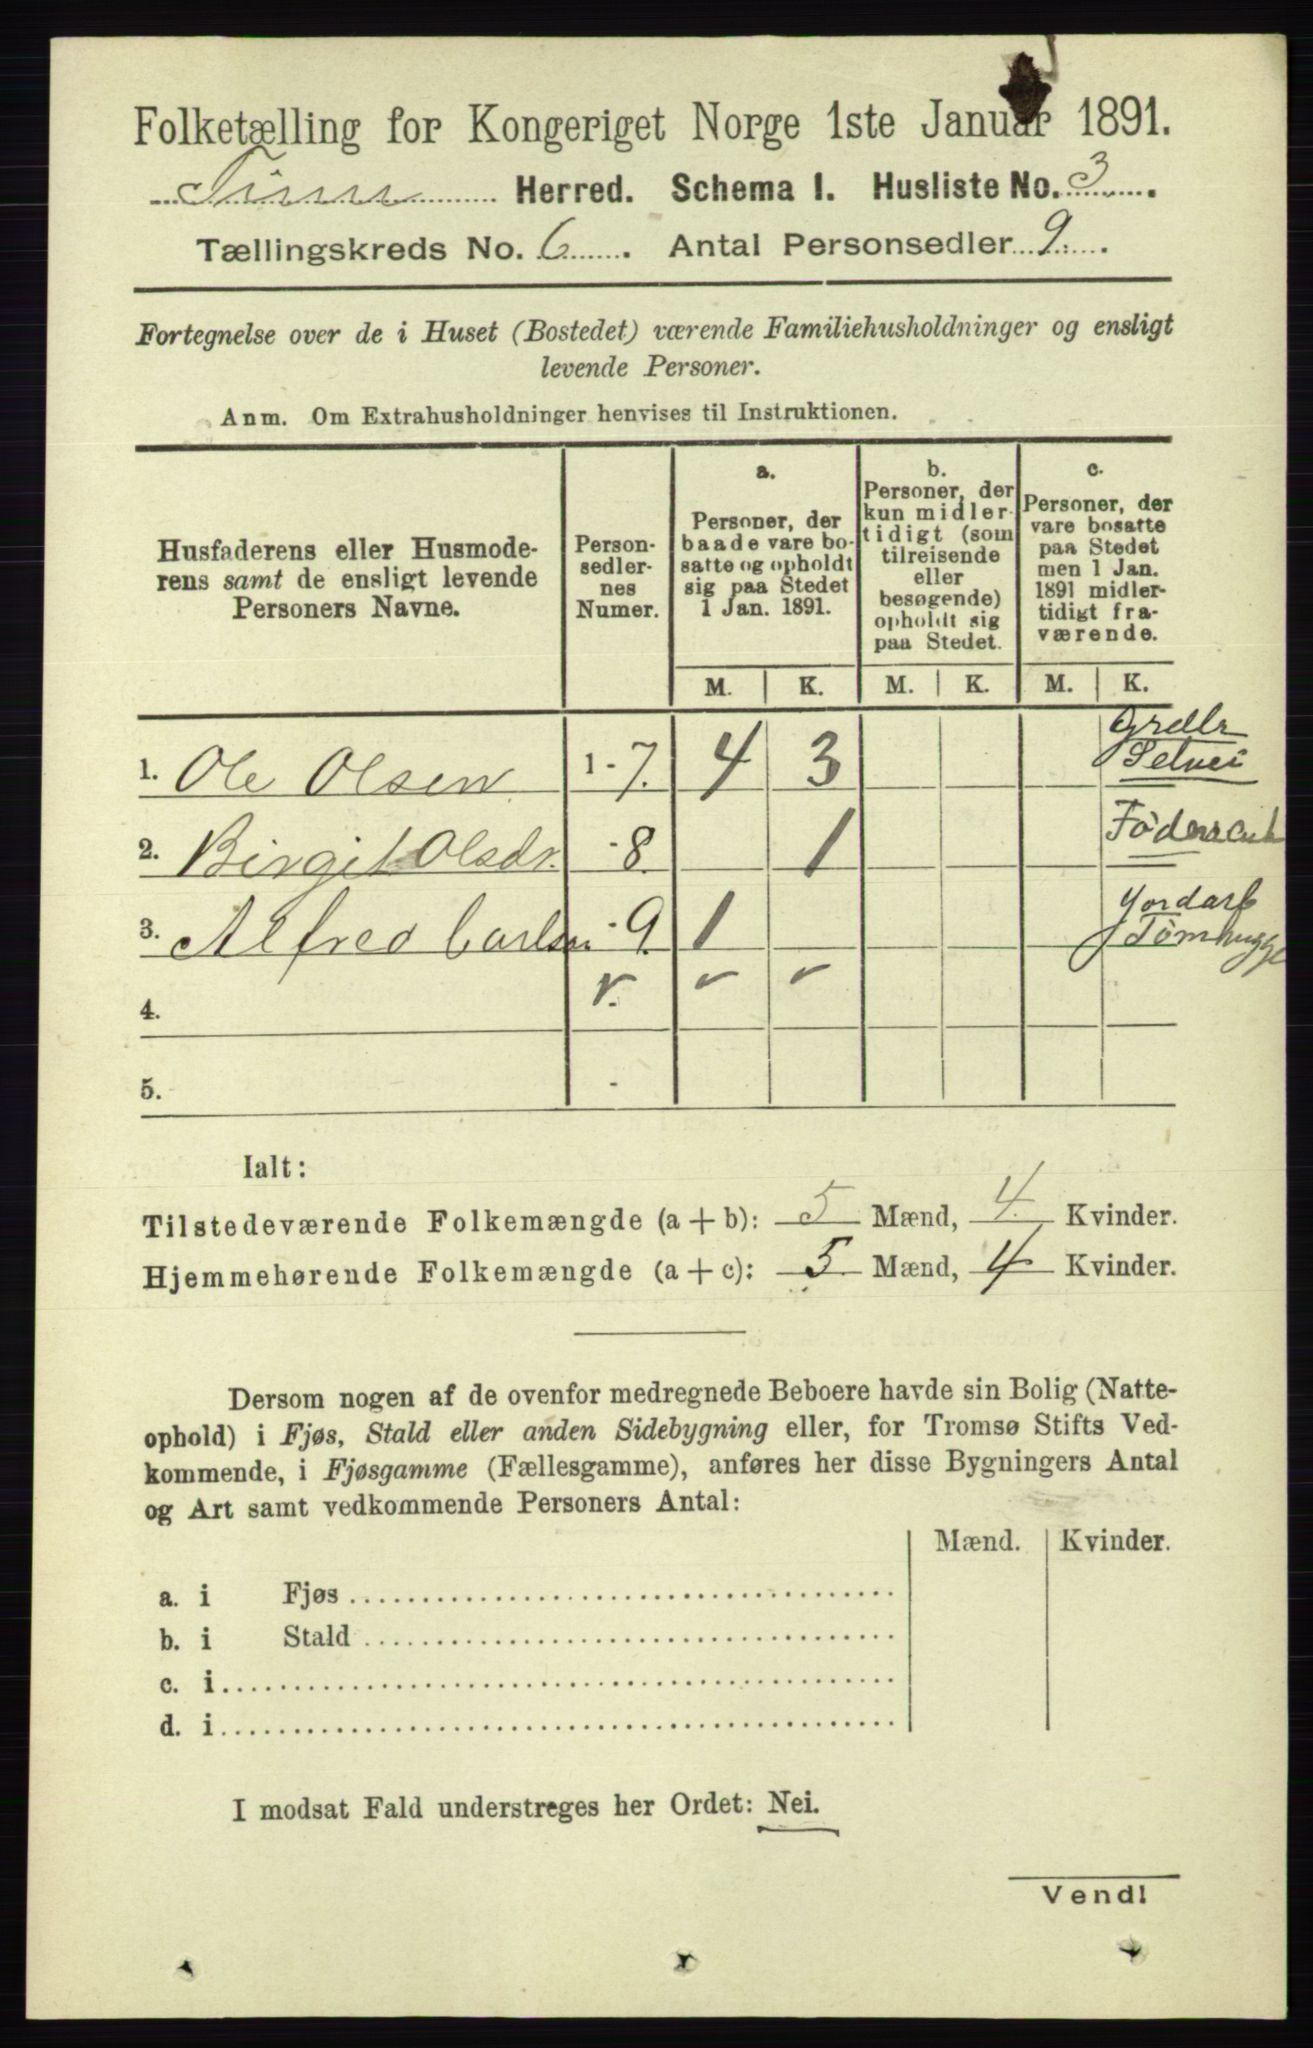 Folketælling for Kongeriget Norge 1ste Januar 1891.
Tinn Herred. Schema 1. Husliste No. 3.
Tællingskreds No. 6. Antal Personsedler 9.
Fortegnelse over de i Huset (Bostedet) værende Familiehusholdninger og ensligt
levende Personer.
Anm. Om Extrahusholdninger henvises til Instruktionen.
Husfaderens eller Husmode-
rens samt de ensligt levende
Personers Navne.
Person-
sedler-
nes
Numer.
a.
Personer, der
baade vare bo-
satte og opholdt
sig paa Stedet
1 Jan. 1891.
b.
Personer, der
kun midler-
tidigt (som
tilreisende
eller
besøgende)
opholdt sig
paa Stedet.
c.
Personer, der
vare bosatte
paa Stedet
men 1 Jan.
1891 midler-
tidigt fra-
værende.
M. K. M. K. M. K.
1. Ole Olsen 1-7. 4 3 Grdbr Selvei
2. Birgit Olsdr. -8. 1
3. Alfred Carlsen -9. 1 Jordarb Tømhugge
4.
5. -
Ialt:
Tilstedeværende Folkemængde (a+b): 5 Mænd, 4 Kvinder.
Hjemmehørende Folkemængde (a+c): 5 Mænd, 4 Kvinder.
Dersom nogen af de ovenfor medregnede Beboere havde sin Bolig (Natte-
ophold) i Fjøs, Stald eller anden Sidebygning eller, for Tromsø Stifts Ved-
kommende, i Fjøsgamme (Fællesgamme), anføres her disse Bygningers Antal
og Art samt vedkommende Personers Antal:
Mænd. Kvinder.
a. i Fjøs
b. i Stald
c. i
d. i
I modsat Fald understreges her Ordet: Nei.
Vend!